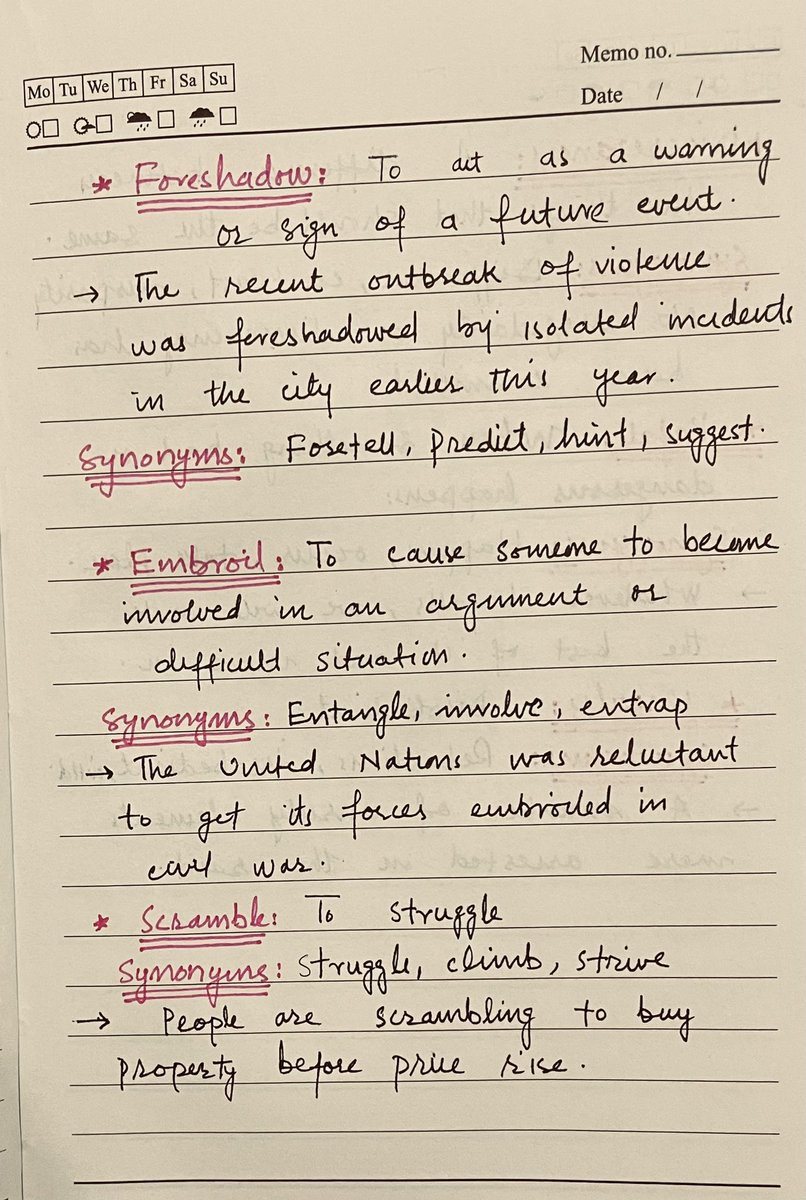 Memo no.
Mo Tu We Th Fr Sa Su
Date / /
* Foreshadow: To act as a warning
or sign of a future event.
→ The recent outbreak of violence
was foreshadowed by isolated incidents
in the city earlier this year.
Synonyms: Foretell, predict, hint, suggest.
* Embroil: To cause someone to become
involved in an argument or
difficult situation.
Synonyms: Entangle, involve, entrap
→ The United Nations was reluctant
to get its forces embroiled in
civil war.
* Scramble: To struggle
Synonyms: Struggle, climb, strive
→ People are scrambling to buy
property before price rise.